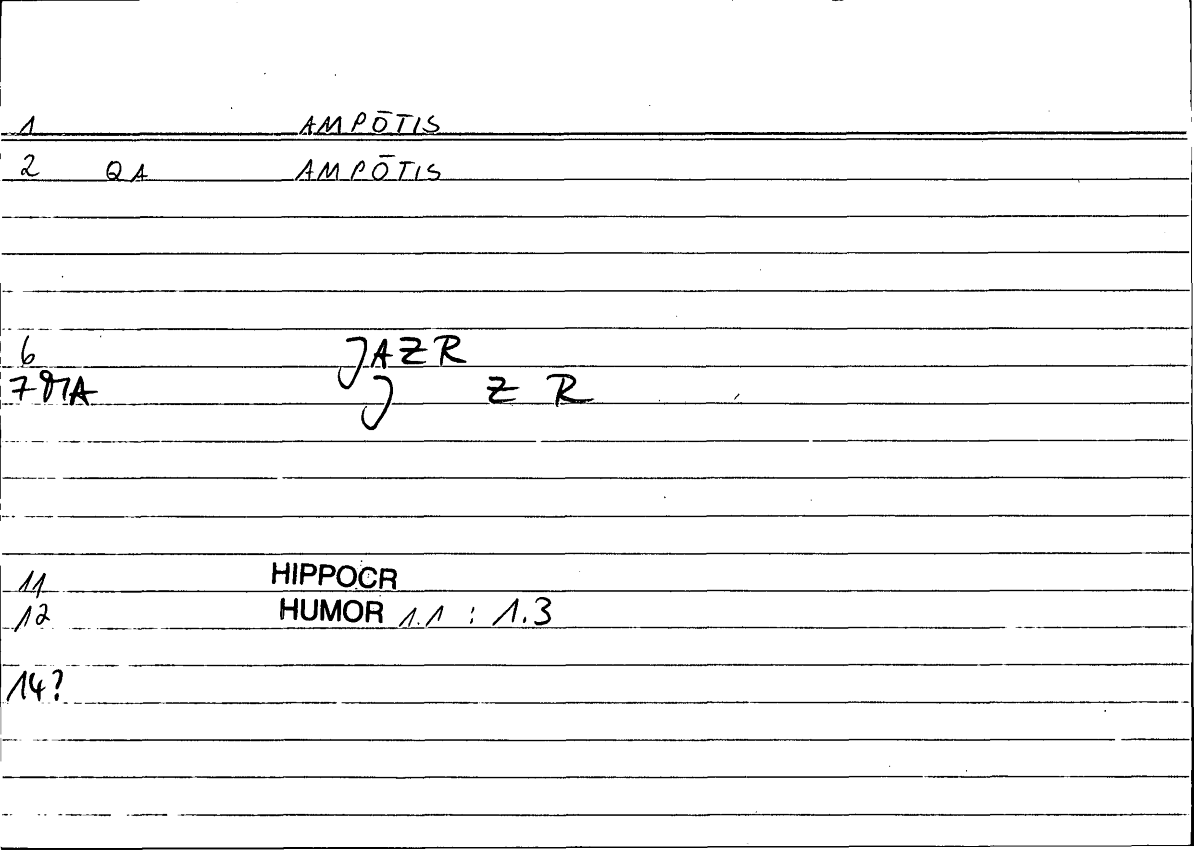 1 AMPŌTIS
2 QA AMPŌTIS
6 JAZR
7 MA J Z R
11 HIPPOCR
12 HUMOR 1.1 : 1.3
14?